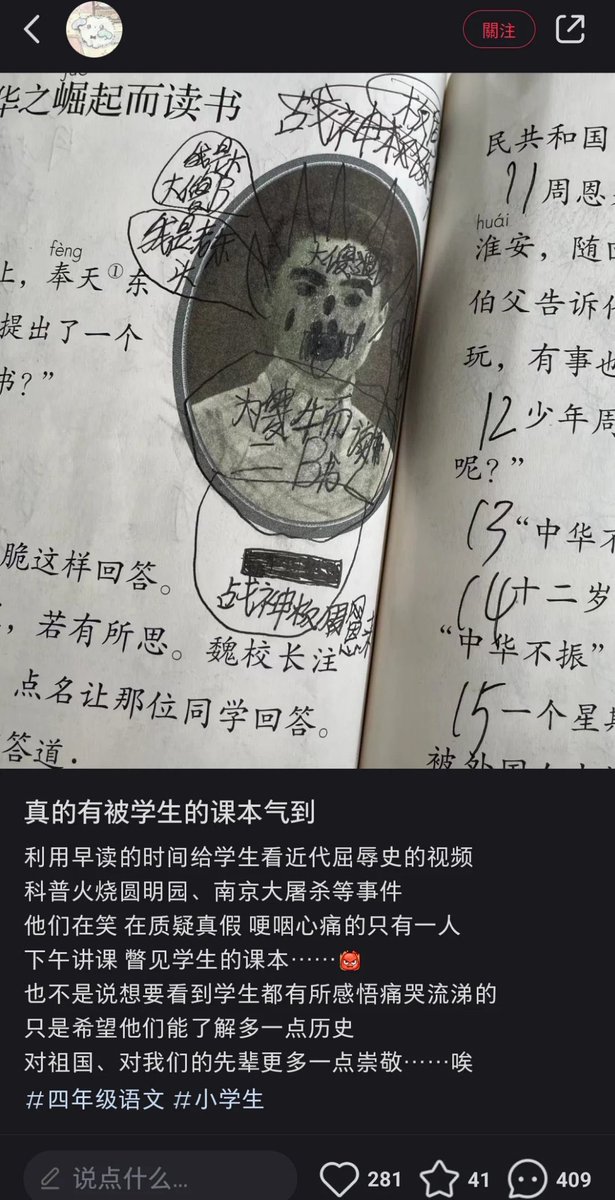 關注
华之崛起而读书
占战神极
我是大
大傻B
我是老东
大傻逼
fèng
上，奉天①东
提出了一个
书？”
为
牛而
二B
脆这样回答。
，若有所思。魏校长注
点名让那位同学回答。
答道：
占战神极周恩来
民共和国
11周恩
huái
淮安，随
伯父告诉
玩，有事也
12少年周
呢？”
13“中华不
14十二岁
“中华不振”
15一个星期
被外国人
真的有被学生的课本气到
利用早读的时间给学生看近代屈辱史的视频
科普火烧圆明园、南京大屠杀等事件
他们在笑 在质疑真假 哽咽心痛的只有一人
下午讲课 瞥见学生的课本……
也不是说想要看到学生都有所感悟痛哭流涕的
只是希望他们能了解多一点历史
对祖国、对我们的先辈更多一点崇敬……唉
#四年级语文 #小学生
说点什么...
281
41
409